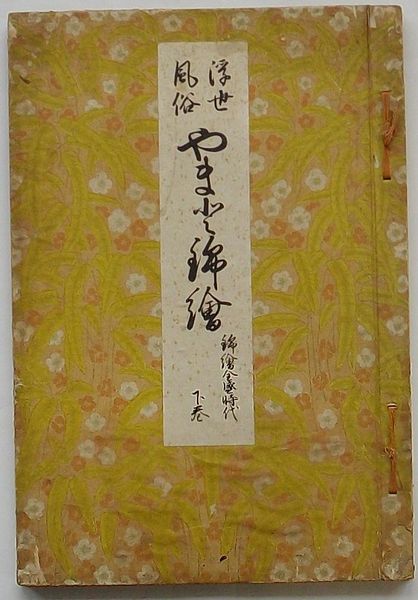 浮世
風俗
やまと錦繪
錦繪全盛時代
下巻